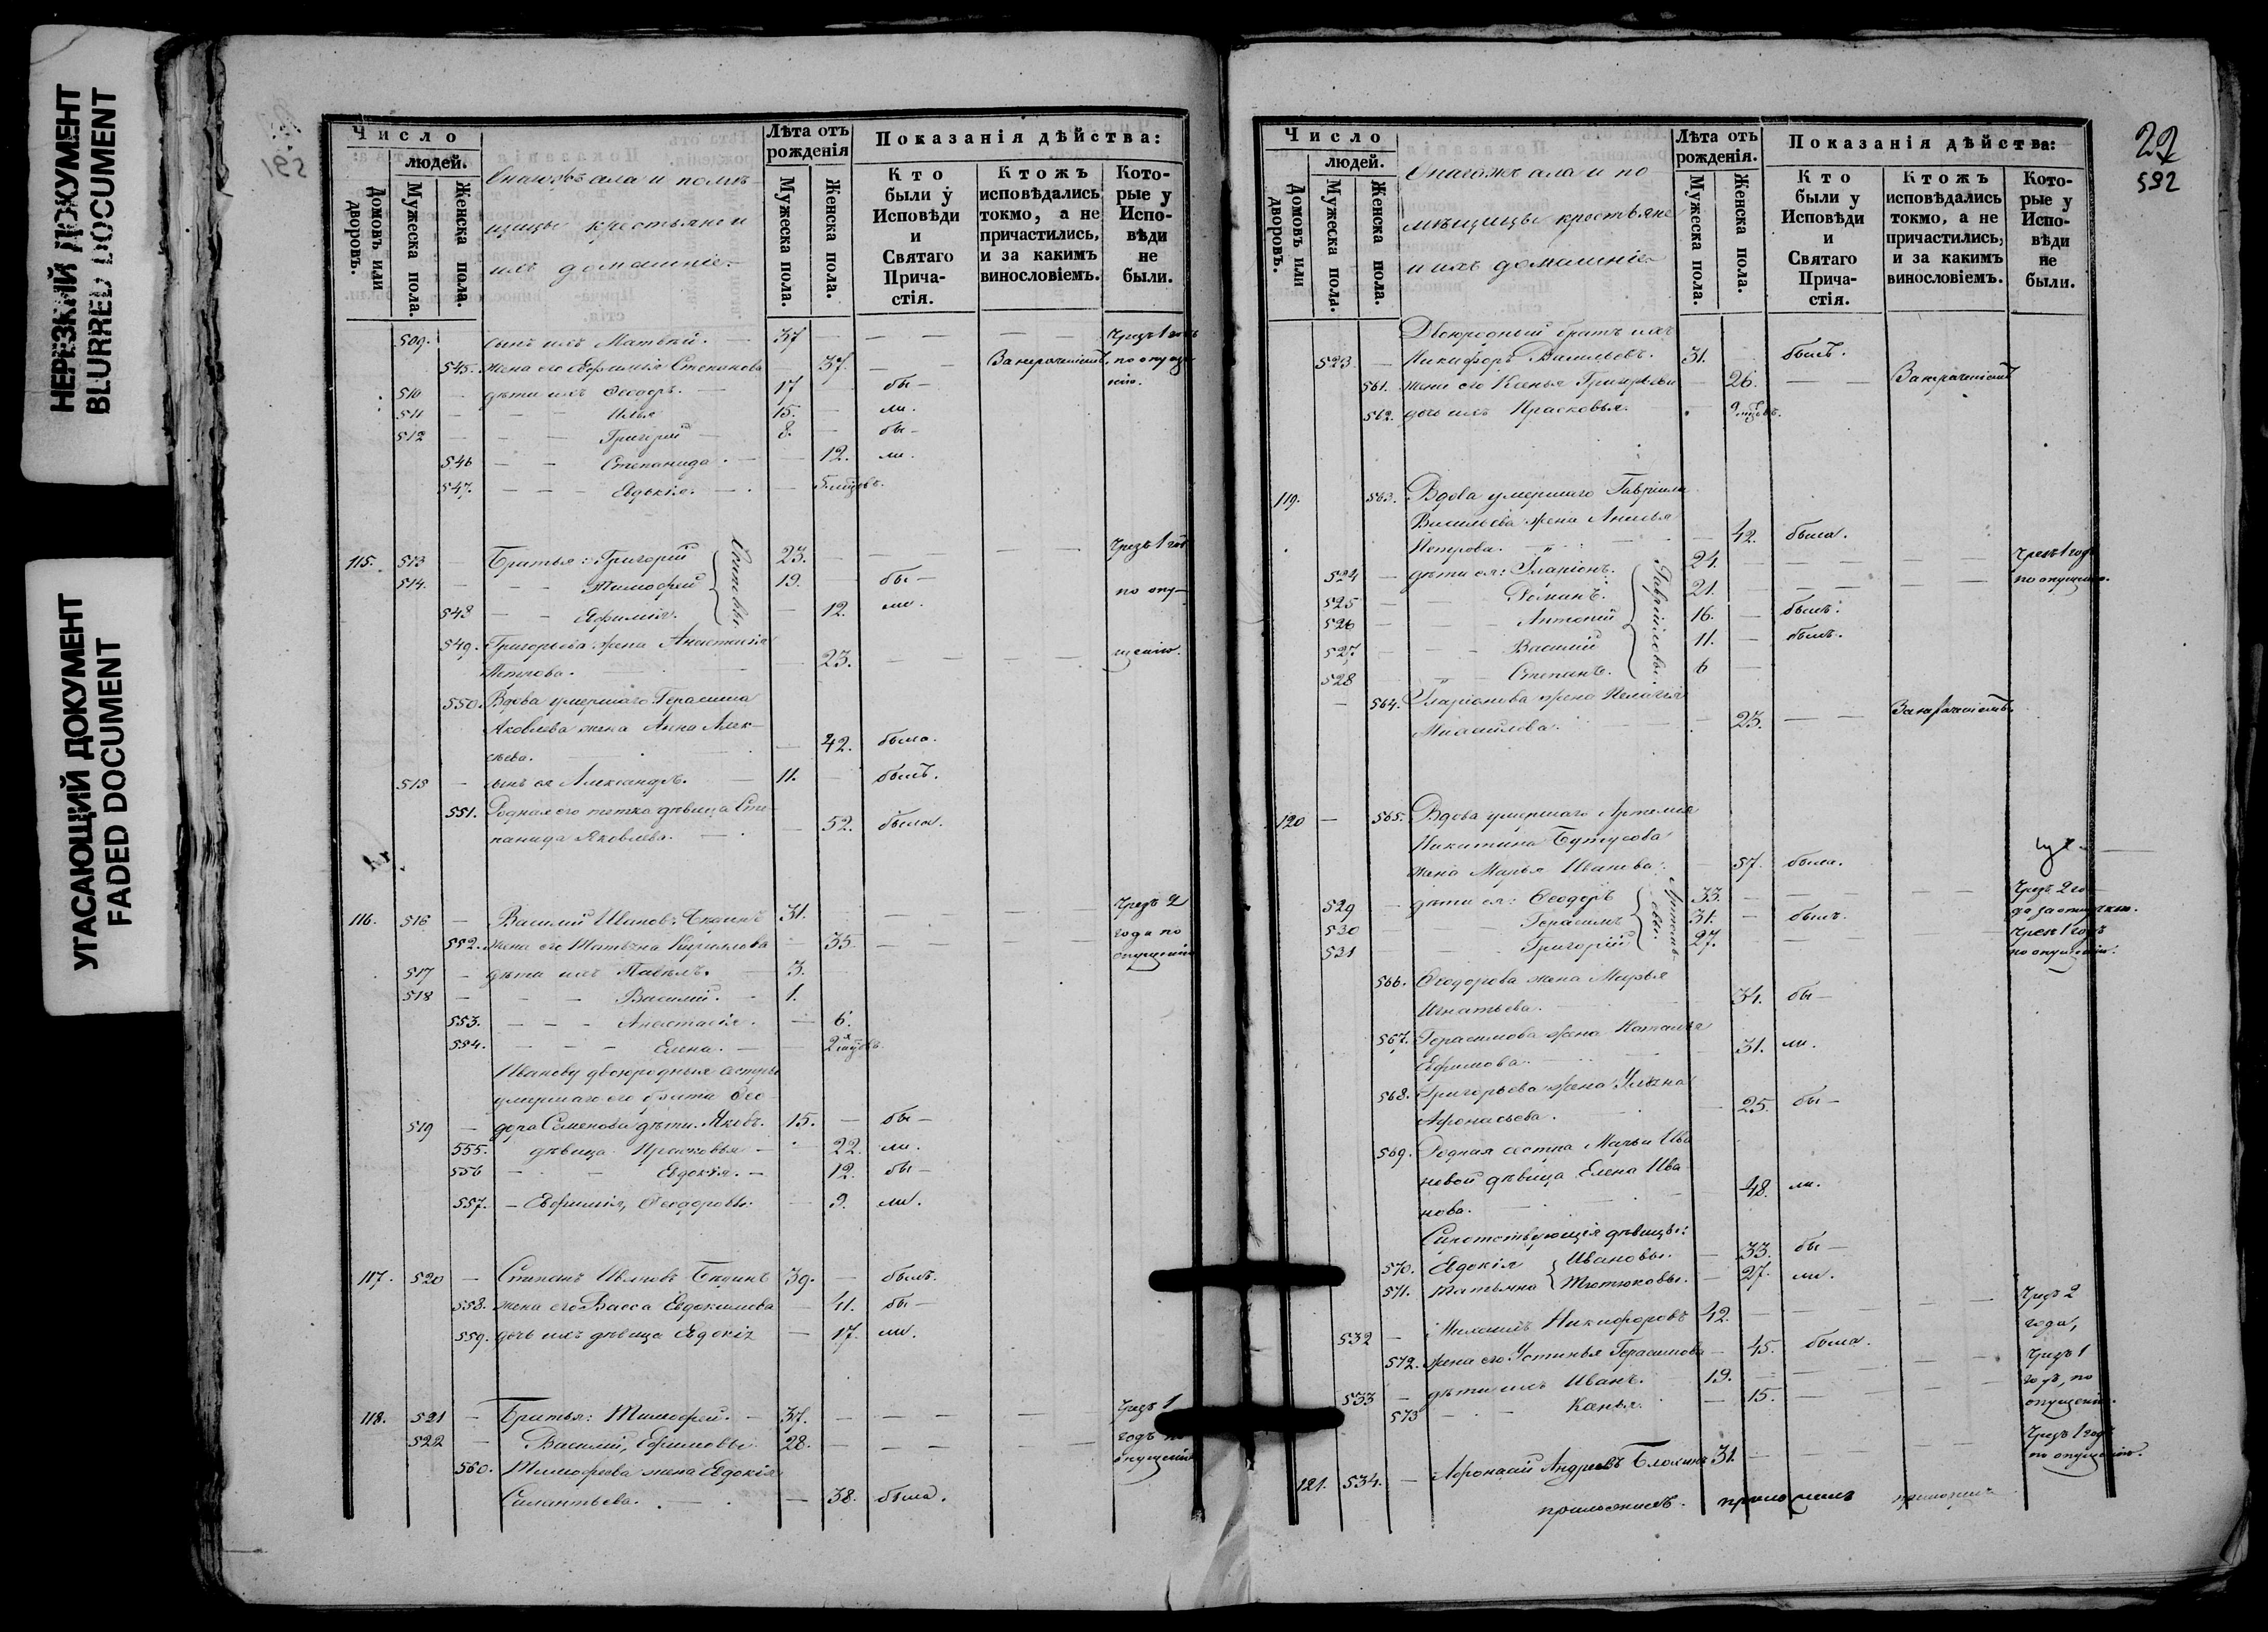 НЕРЕЗКИЙ ДОКУМЕНТ
BLURRED DOCUMENT
УГАСАЮЩИЙ ДОКУМЕНТ
FADED DOCUMENT
Число
людей.
Домовъ или дворовъ.
Мужеска пола.
Женска пола.
Лѣта отъ рожденія
Мужеска пола.
Женска пола.
Показанія дѣйства:
Кто были у Исповѣди и Святаго Прича-стія.
Ктожъ исповѣдались токмо, а не причастились, и за какимъ винословіемъ.
Кото-рые у Испо-вѣди не были.
509. сынъ ихъ Матвей. 37 Чрезъ 1 годъ
545. жена его Евфимія Степанова 37.
510 дѣти ихъ Ѳеодоръ. 17 бы-
511 Илья 15. ли.
512 Григорій 8. бы-
546 Степанида 12. ли.
547. Евдокія.
115. 513 Братья: Григорій 23. Чрезъ 1 годъ
514. Тимофей 19. бы- по опу-
548 Евфимія. 12. ли.
549. Григорьева жена Анастасія щенію.
Петрова. 23.
550. Вдова умершаго Герасима
Яковлева жена Анна Алек-
сѣева. 42. была.
515 сынъ ея Александръ. 11. былъ.
551. Родная его тетка дѣвица Сте-
панида Яковлева. 52. была.
116. 516 Василій Ивановъ 31. Чрезъ 2
552. жена его Татьяна Кириллова 35 года по
опущенію
517 дѣти ихъ Павелъ. 3.
518 Василій. 1.
553. Анастасія. 6.
554. Елена. 2
умершаго его брата Ѳео-
519 дора Семенова дѣти. Яковъ. 15. бы-
555. дѣвица Прасковья 22. ли.
556 Евдокія. 12. бы-
557. Евфимія, Ѳеодоровы. 9. ли.
117. 520 Степанъ Ивановъ 39. былъ.
558. жена его Васса Евдокимова 41. бы-
559. дочь ихъ дѣвица Евдокія 17. ли.
118. 521 Братья: Тимофей. 37. Чрезъ 1
522 Василій, Ефимовы 28. годъ по
опущенію
560. Тимофеева жена Евдокія
Силантьева. 38. была.
22
592
Число
людей.
Домовъ или дворовъ.
Мужеска пола.
Женска пола.
Лѣта отъ рожденія.
Мужеска пола.
Женска пола.
Показанія дѣйства:
Кто были у Исповѣди и Святаго Прича-стія.
Ктожъ исповѣдались токмо, а не причастились, и за какимъ винословіемъ.
Кото-рые у Испо-вѣди не были.
Двоюродный братъ ихъ
523 Никифоръ Васильевъ. 31. былъ.
561. жена его Ксенья Григорьева 26.
562. дочь ихъ Прасковья.
119. 563. Вдова умершаго Гавріила
Васильева жена Анисья
Петрова. 42. была.
524 дѣти ея: Иларіонъ. 24. Чрезъ 1 годъ
525 Романъ. 21. по опущенію.
526 Антоній 16. былъ.
527. Василій 11. былъ.
528 Степанъ. 6
Гавріиловы.
564. Иларіонова жена Пелагія
Михайлова. 23.
120 565. Вдова умершаго Артемія
Никитина Бутусова
жена Марья Иванова. 57. была.
529 дѣти ея: Ѳеодоръ 33. Чрезъ 2 го-
530 Герасимъ 31. былъ.
531 Григорій 27. Чрезъ 1 годъ
по опущенію.
566. Ѳеодорова жена Марья
Игнатьева. 34. бы-
567. Герасимова жена Наталья
Ефимова. 31. ли.
568. Григорьева жена Ульяна
Афонасьева. 25. бы-
569. Родная сестра Марьи Ива
новой дѣвица Елена Ива
нова. 48. ли.
Сиротствующія дѣвицы:
570. Евдокія Ивановы. 33. бы-
571. Татьяна Тютюковы. 27. ли.
532 Михаилъ Никифоровъ 42. Чрезъ 2
года,
572. жена его Устинья Герасимова 45. была. Чрезъ 1
533 дѣти ихъ Иванъ. 19. годъ, по
573 15. опущенію.
121. 534. Афонасій Андреевъ Блохинъ 31. Чрезъ 1 годъ
по опущенію.